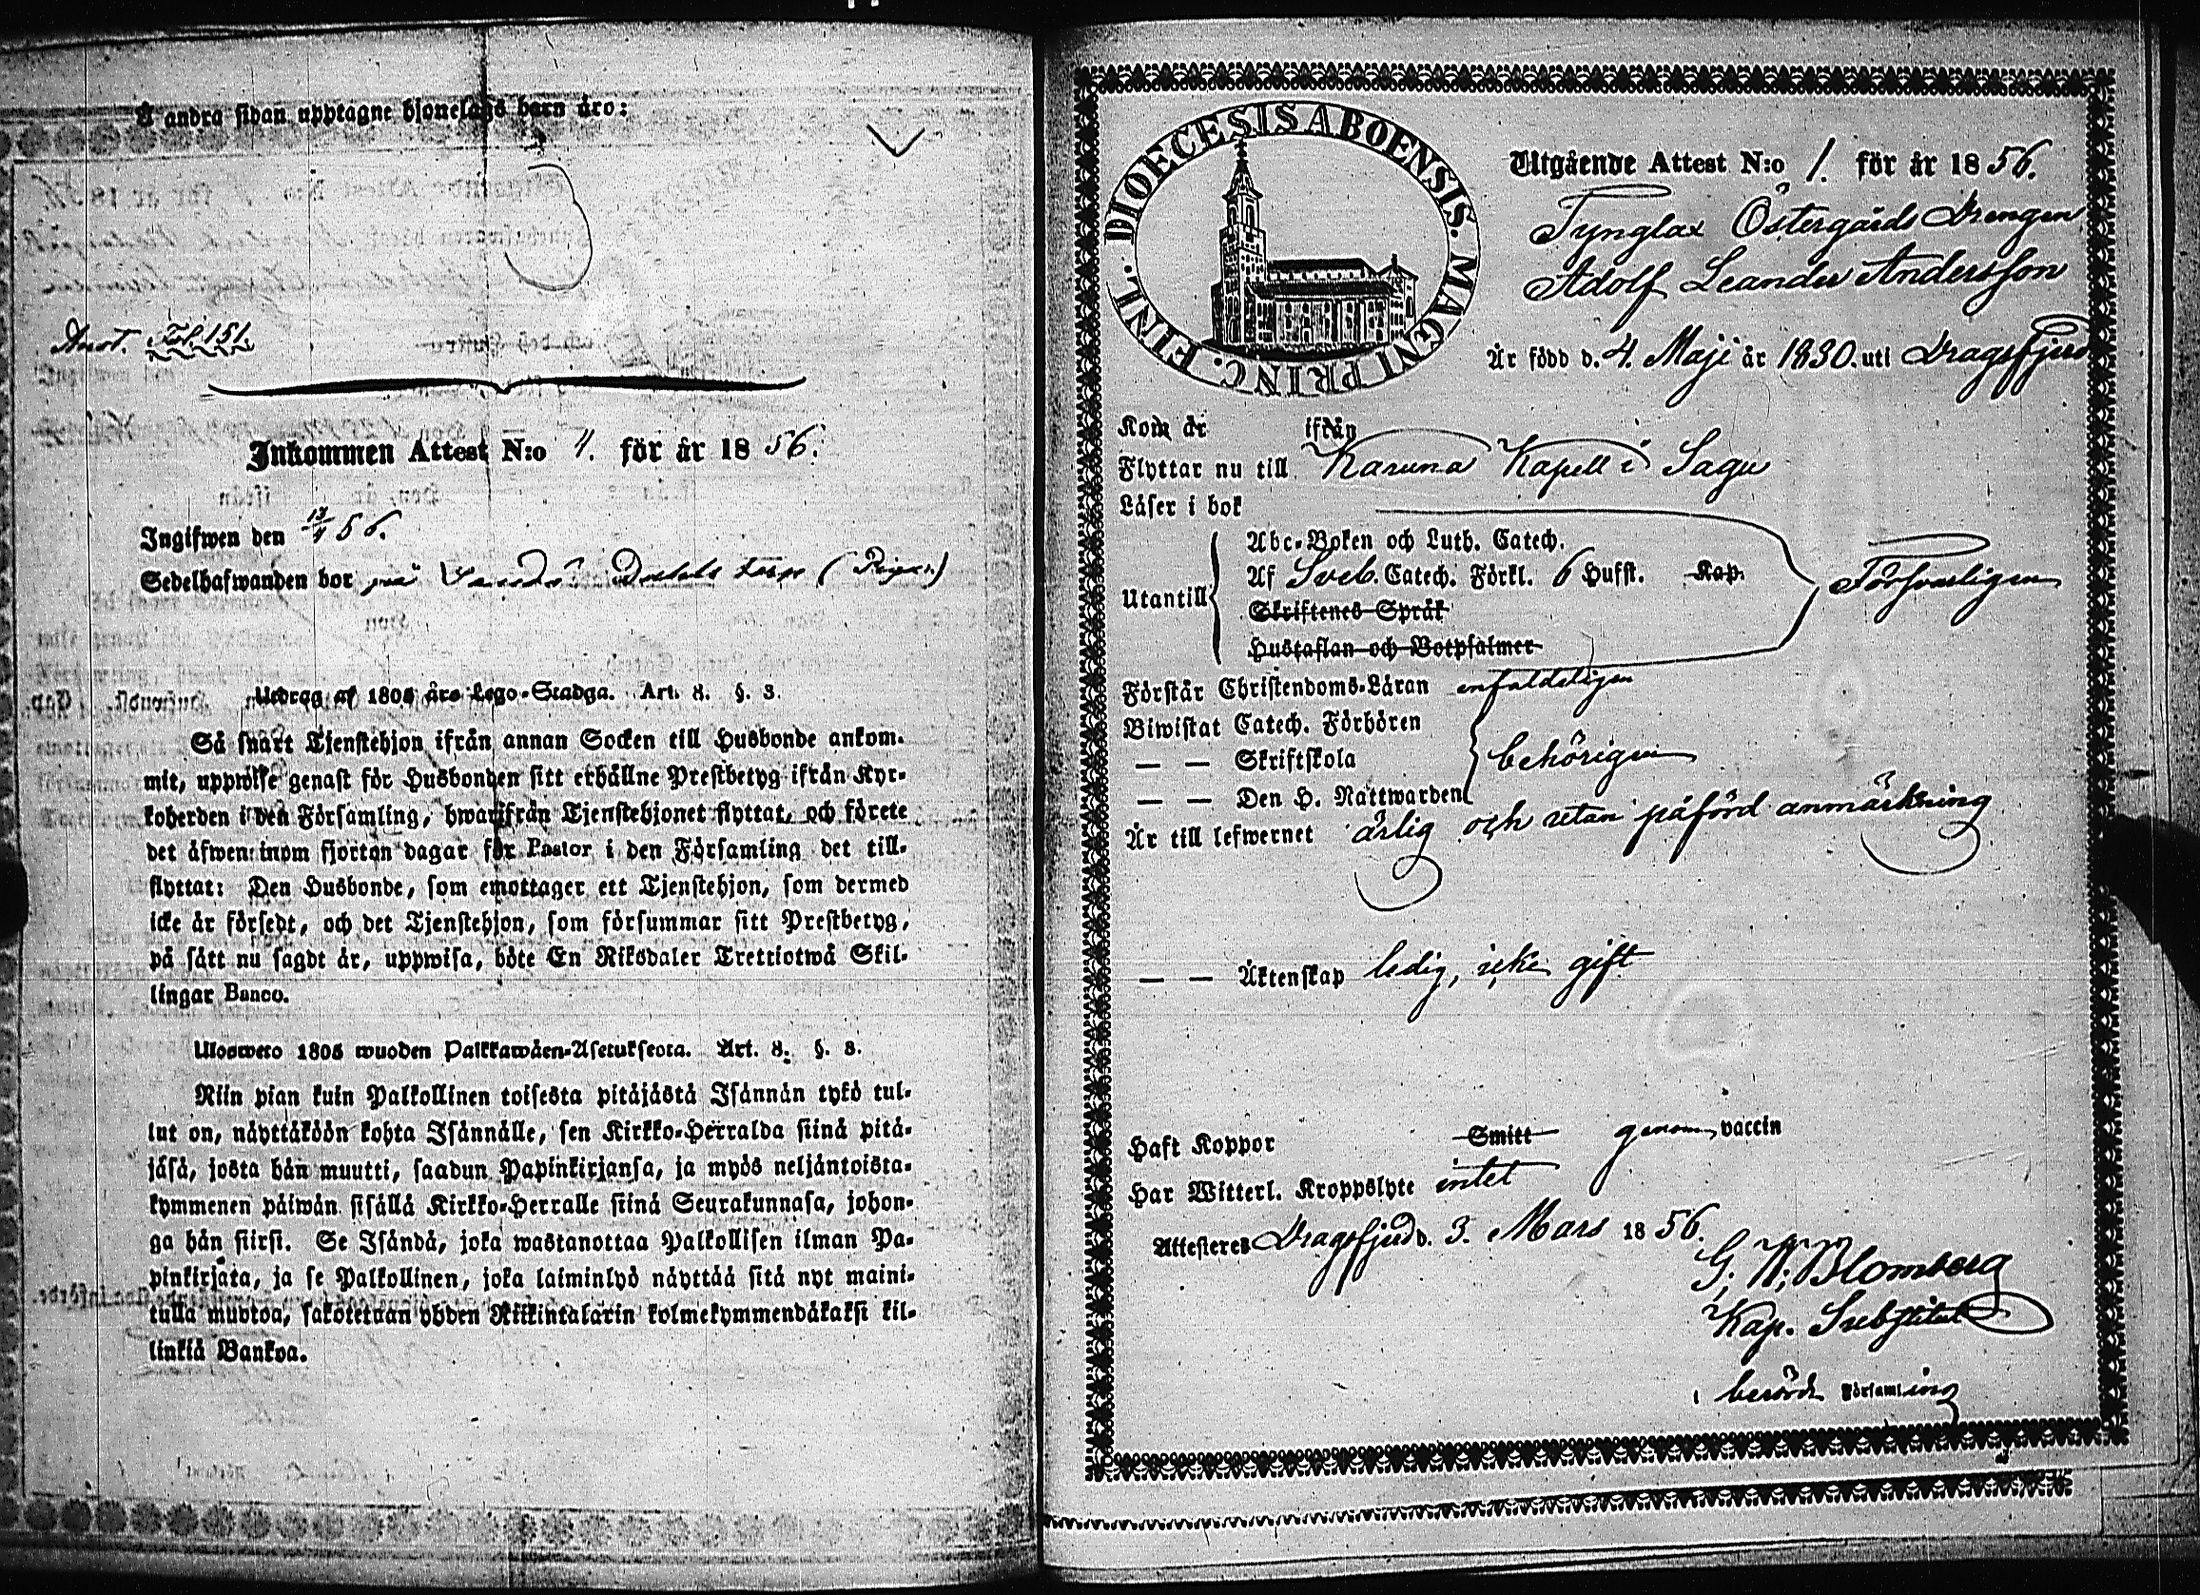 Å andra sidan upptagne hjonelags barn äro:
3
Anot. Fol. 151.
Inkommen Attest N:o 4. för år 1856.
Ingifwen den 13/4 56.
Sedelhafwanden bor på torp
Utdrag af 1805 års Lego-Stadga. Art. 8. §. 3.
Så snart Tjenstehjon ifrån annan Socken till Husbonde ankom-
mit, uppwise genast för Husbonden sitt erhållne Prestbetyg ifrån Kyr-
koherden i den Församling, hwarifrån Tjenstehjonet flyttat, och förete
det äfwen inom fjorton dagar för Pastor i den Församling det till-
flyttat: Den Husbonde, som emottager ett Tjenstehjon, som dermed
icke är försedt, och det Tjenstehjon, som försummar sitt Prestbetyg,
på sätt nu sagdt är, uppwisa, böte En Riksdaler Trettiotwå Skil-
lingar Banco.
Ulosweto 1805 wuoden Palkkawäen-Asetuksesta. Art. 8. §. 3.
Niin pian kuin Palkollinen toisesta pitäjästä Isännän tykö tul-
lut on, näyttäköön kohta Isännälle, sen Kirkko-Herralda siinä pitä-
jäsä, josta hän muutti, saadun Papinkirjansa, ja myös neljäntoista-
kymmenen päiwän sisällä Kirkko-Herralle siinä Seurakunnasa, johon-
ga hän siirsi. Se Isändä, joka wastanottaa Palkollisen ilman Pa-
pinkirjata, ja se Palkollinen, joka laiminlyö näyttää sitä nyt maini-
tulla muotoa, sakotetaan yhden Riikintalarin kolmekymmendäkaksi kil-
linkiä Bankoa.
DIOECESIS ABOENSIS. MAGNI PRINC. FINL.
Utgående Attest N:o 1. för år 1856.
Tynglax Östergårds Drengen
Adolf Leander Andersson
Är född d. 4. Maji år 1830. uti Dragsfjerd
Kom år ifrån
Flyttar nu till Karuna Kapell i Sagu
Läser i bok
Abc-Boken och Luth. Catech.
Af Sveb. Catech. Förkl. 6 Hufst. Kap.
Utantill Försvarligen
Skriftenes Språk
Hustaflan och Botpsalmer
Förstår Christendoms-Läran enfaldeligen
Biwistat Catech. Förhören
— — Skriftskola behörigen
— — Den H. Nattwarden
Är till lefwernet ärlig och utan påförd anmärkning
— — Äktenskap ledig, icke gift
Haft Koppor Smitt genom vaccin
Har Witterl. Kroppslyte intet
Attesteres Dragsfjerd d. 3. Mars 1856.
G. W. Blomberg
Kap. Substitut
i berörde Församling